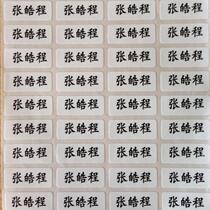 张皓程 张皓程 张皓程 张皓程
张皓程 张皓程 张皓程 张皓程
张皓程 张皓程 张皓程 张皓程
张皓程 张皓程 张皓程 张皓程
张皓程 张皓程 张皓程 张皓程
张皓程 张皓程 张皓程 张皓程
张皓程 张皓程 张皓程 张皓程
张皓程 张皓程 张皓程 张皓程